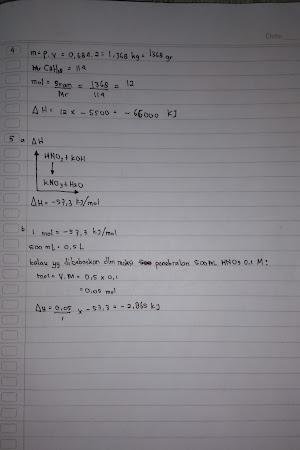 Date:
4 m = ρ . V = 0,684 . 2 = 1,368 kg = 1368 gr
Mr C8H18 = 114
mol = gram / Mr = 1368 / 114 = 12
ΔH = 12 x -5500 = -66000 kJ
5 a ΔH
HNO3 + KOH
KNO3 + H2O
ΔH = -57,3 kJ/mol
b 1 mol = -57,3 kJ/mol
500 mL = 0,5 L
kalau yg dibebaskan dlm reaksi penetralan 500 mL HNO3 0.1 M :
mol = V . M = 0,5 x 0,1
= 0,05 mol
ΔH = 0,05 / 1 x -57,3 = -2,865 kJ